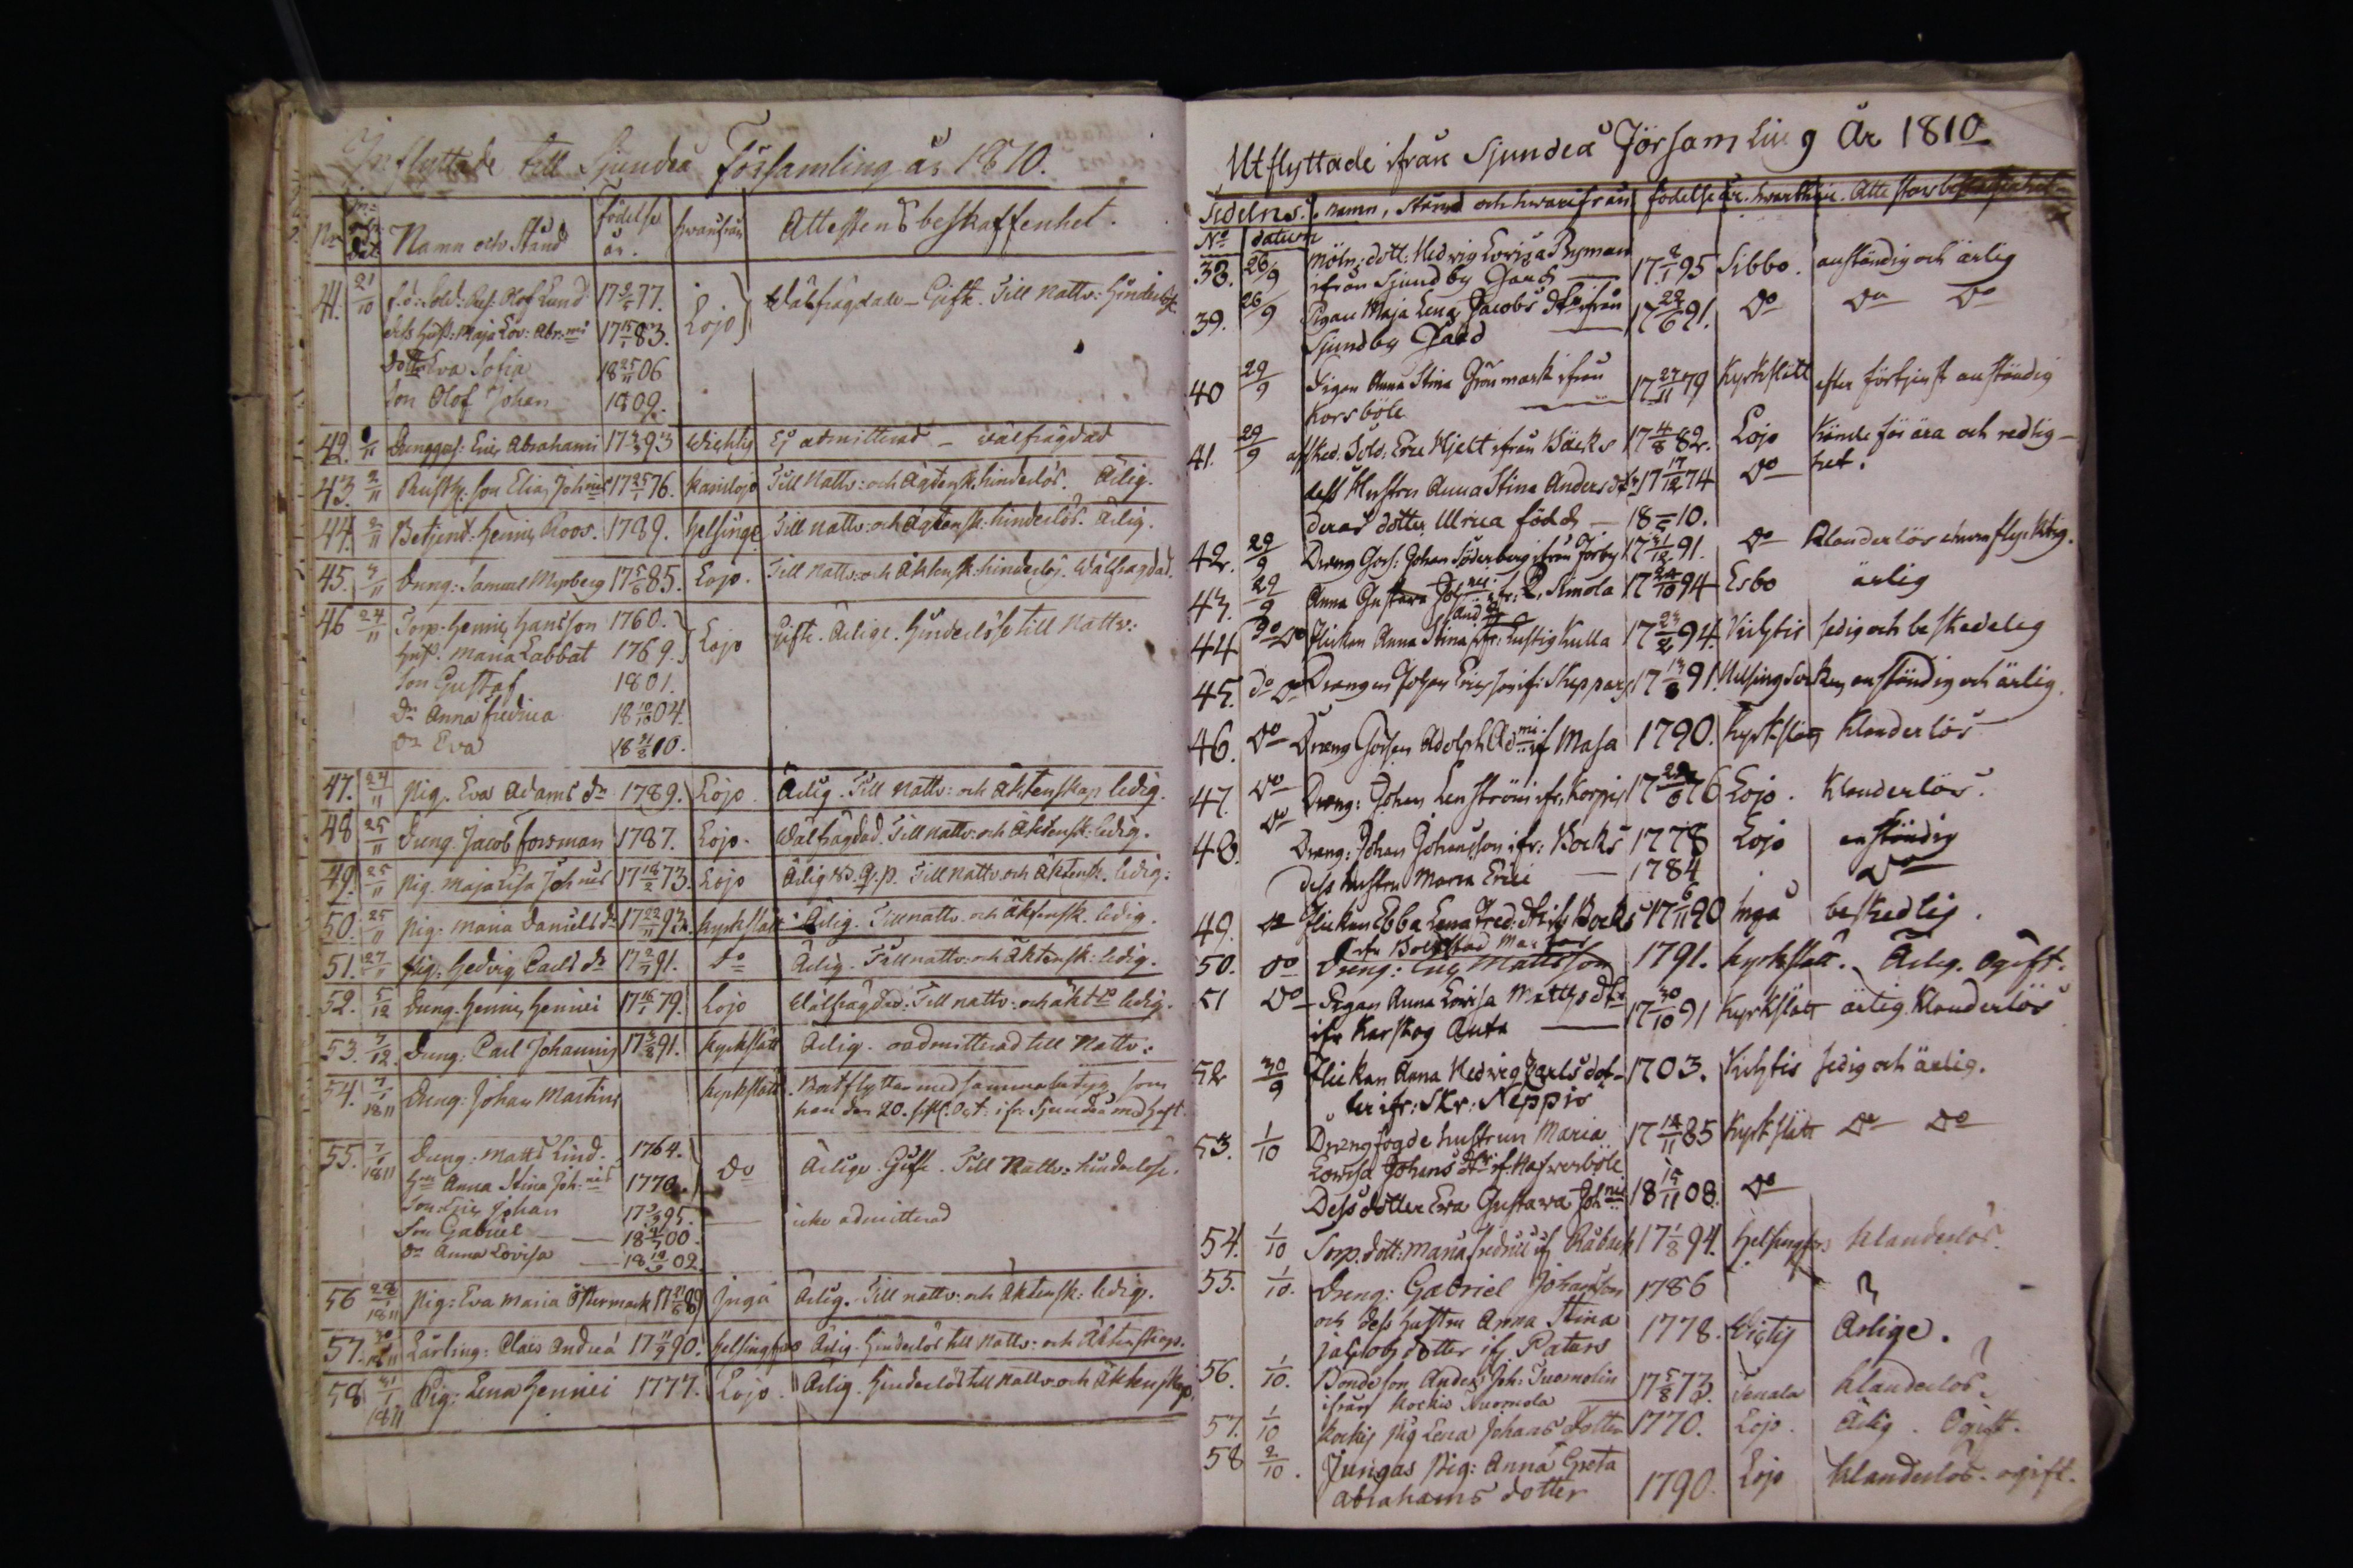 Inflyttade till Sjundeå Församling år 1810.
No Dat. Namn och Stånd Födelse år. hvarifrån Attestens beskaffenhet.
41. 21/10 f.d. Sold: Olof Lund 1777. Lojo Wälfrägdade - Gifte. Till Nattv: hinderlöse
dess Hust: Maja Lov: Abr:mi 17 15/1 83.
Dott. Eva Sofia 18 25/11 06
Son Olof Johan 1809.
42. /11 Drenggos: Eric Abrahami 1793 Wichtis Ej admitterad - wälfrägdad
43. 2/11 Rusth: son Elias Joh:nis 17 25/1 76. Karislojo Till Nattv: och Ägtensk. hinderlös. Ärlig.
44. 2/11 Betjent: Henric Roos. 1789. Helsinge Till nattv: och ägtensk: hinderlös. ärlig.
45. /11 Dreng: Samuel Myrberg 17 5/6 85. Lojo. Till Nattv: och Äktensk: hinderlös. Wälfrägdad.
46 24/11 Torp: Henric Hansson 1760. Lojo Gifte. Ärlige. Hinderlöse till Nattv:
Hust. Maria Labbat 1769.
Son Gustaf 1801.
Dr Anna Fredrica 1804.
Dr Eva 1810.
47. 24/11 Pig. Eva Adams dr 1789. Lojo Ärlig. Till Nattv: och Äktenskap ledig.
48 25/11 Dreng. Jacob Forsman 1787. Lojo. Wälfrägdad. Till nattv: och Äktensk: ledig.
49. 25/11 Pig. Maja Lisa Joh:nis 17 18/2 73. Lojo Ärlig Till Nattv. och Äktensk. ledig.
50. 25/11 Pig: Maria Daniels dr 17 22/11 93. Kyrkslätt Ärlig. Till nattv. och Äktensk. ledig.
51. 27/11 Pig: Hedvig Carls dr 1791. do Ärlig. Till nattv: och Äktensk: ledig.
52. 5/12 Dreng. Henric Henrici 17 16/1 79. Lojo Wälfrägdad. Till nattv: och äkt:p ledig.
53. 7/12. Dreng: Carl Johannis 17 3/8 91. Kyrkslätt Ärlig. oadmitterad till Nattv:
54. 7/1 1811 Dreng: Johan Martin Kyrkslätt Bortflyttar med samma betyg som
han den 20. Oct: ifr: Sjundeå med haft
55. 7/1 1811 Dreng: Matts Lind. 1764. Do Ärlige. Gifte. Till Nattv: hinderlöse.
Hu Anna Stina Joh:nis 1770.
Son Eric Johan 1795. icke admitterad
Son Gabriel 1800.
Dr Anna Lovisa 1802.
56 28/1 1811 Pig: Eva Maria Östermark 17 21/8 89 Ingå Ärlig. Till nattv: och Äktensk: ledig.
57. 30/1 1811 Lärling: Claes Andreæ 17 11/9 90. Helsingfors Ärlig. Hinderlös till Nattv: och Äktenskap.
58 31/1 1811 Pig: Lena Henrici 1777. Lojo. Ärlig. Hinderlös till Nattv. och Äktenskap.
Utflyttade ifrån Sjundeå Församling År 1810
Sedelns namn, stånd och hwarifrån födelse år. hwarthän. Attestans beskaffenhet
No datum
38. 26/9 Möln: dott: Hedvig Lovisa Ryman 17 8/1 95 Sibbo. anständig och ärlig
ifrån Sjundby Gård
39. 26/9 Pigan Maja Lena Jacobs dtr ifrån 17 22/6 91. Do Do Do
Sjundby Gård
40 29/9 Pigan Anna Stina Grönmark ifrån 17 27/11 79 Kyrkslätt efter förtjenst anständig
Korsböle
41. 29/9 afsked. Sold: Eric Hjelt ifrån Bäcks 17 4/8 82. Lojo Kände för ära och redlig-
dess Hustru Anna Stina Anders dtr 17 17/12 74 Do het.
deras dotter Ulrica född 1810.
42. 29/9 Dreng Gos: Johan Söderberg ifrån Forby 17 21/12 91. Do Klanderlös
43. 29/9 Anna Gustava Joh:nis ifr: Simola 17 24/10 94 Esbo ärlig
44 Do Do Flickan Anna Stina And dr ifr: Lustig Kulla 17 23/2 94. Vichtis sedig och beskedelig
45. Do Do Drengen Johan Ericsson ifr: Skeppars 17 13/8 91. Helsing Socken anständig och ärlig.
46. Do Dreng Gossen Adolph Ad:mi if Masa 1790. Kyrkslätt Klanderlös
47. Do Dreng: Johan Lenström ifr. Korpis 1776 Lojo. Klanderlös.
48. Do Dreng: Johan Johansson ifr: Bocks 1778 Lojo anständig
Dess hustru Maria Erici 1784 Do
49. Do Flickan Ebba Lena Fred: dtr ifr Bocks 17 6/11 90 Ingå beskedlig.
50. Do Dreng: Eric Mattsson 1791. Kyrkslätt. Ärlig. Ogift.
51 Do Pigan Anna Lovisa Matts dtr 17 30/10 91 Kyrkslätt ärlig Klanderlös
ifr Karskog Anta
52 30/9 Flickan Anna Hedvig Carls dot- 1703. Vichtis sedig och ärlig.
ter ifr: Skr: Neppis
53. 1/10 Drengfogde hustrun Maria 17 12/11 85 Kyrkslätt Do Do
Lovisa Johans dtr if: Hafverböle
Dess dotter Eva Gustava Joh:ni 18 15/11 08. Do
54. 1/10 Torp. dott: Maria Fredrici if Råbäck 17 1/8 94. Helsingfors Klanderlös.
55. 1/10. Dreng: Gabriel Johansson 1786
och dess hustru Anna Stina 1778. Wichtis Ärlige.
Jacobs dotter ifr Paters
56. 1/10. Bonde son Anders Joh: Tuomolin 17 5/8 73. Tenala Klanderlös.
ifrån Kockis Nuomola
57. 1/10 Kockis Pig Lena Johans dotter 1770. Lojo. Ärlig. Ogift.
58 2/10. Jungas Pig: Anna Greta 1790. Lojo Klanderlös. ogift.
Abrahams dotter